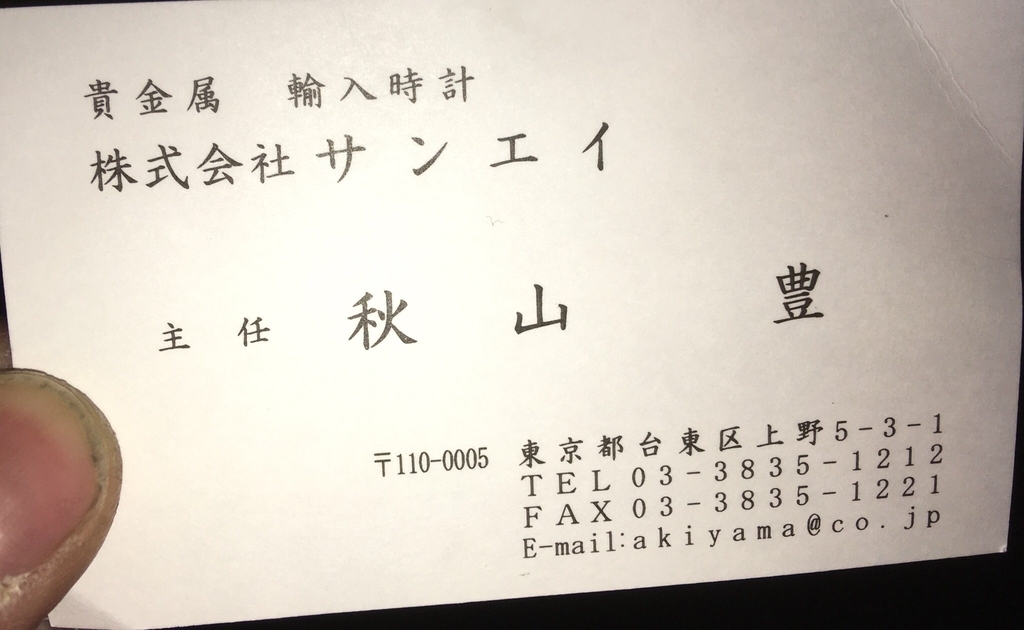 貴金属 輸入時計
株式会社サンエイ
主任 秋山 豊
〒110-0005 東京都台東区上野5-3-1
TEL 03-3835-1212
FAX 03-3835-1221
E-mail:akiyama@co.jp